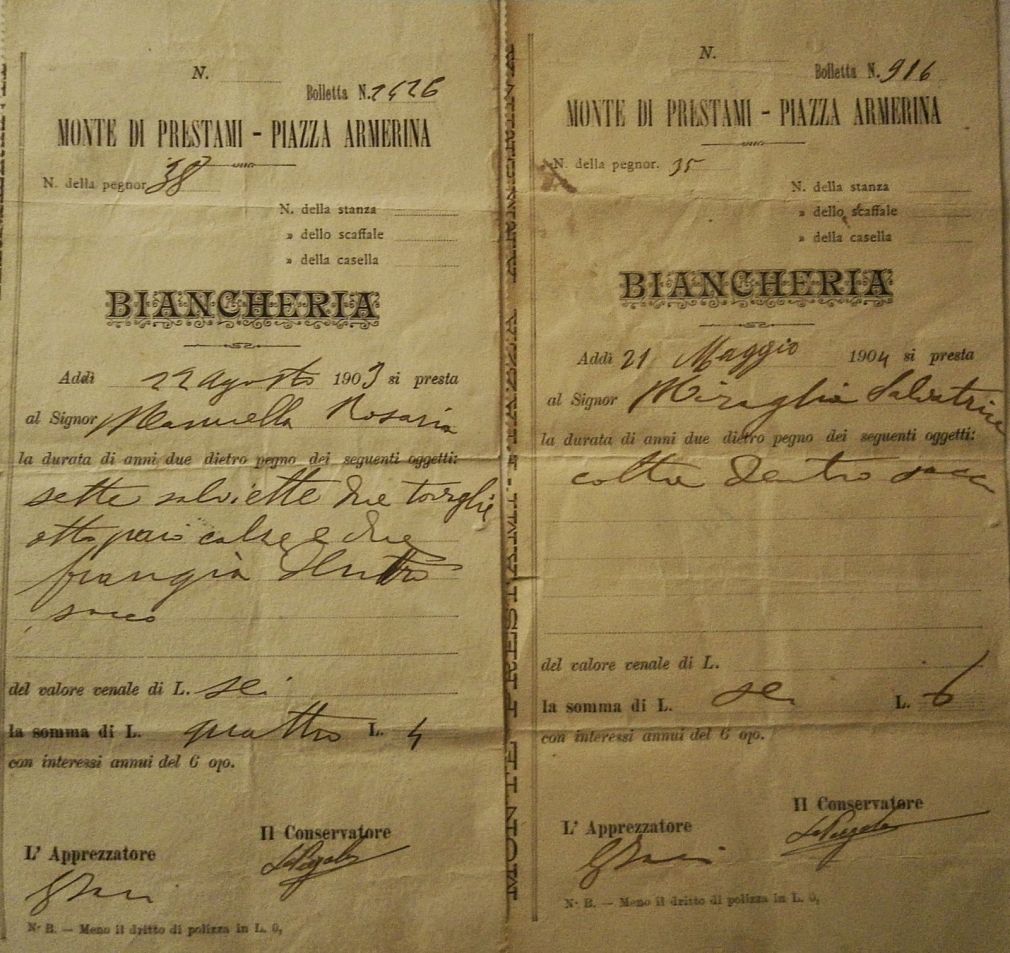 N.
Bolletta N. 2426
MONTE DI PRESTAMI - PIAZZA ARMERINA
N. della pegnor. 38
N. della stanza
» dello scaffale
» della casella
BIANCHERIA
Addì 22 Agosto 1903 si presta
al Signor Rosaria
la durata di anni due dietro pegno dei seguenti oggetti:
sette salviette due tovaglie
otto paio calse e due
frangia dentro
sacco
del valore venale di L. sei
la somma di L. quattro L. 4
con interessi annui del 6 o|o.
L' Apprezzatore
Il Conservatore
N. B. — Meno il dritto di polizza in L. 0,
N.
Bolletta N. 916
MONTE DI PRESTAMI - PIAZZA ARMERINA
N. della pegnor. 35
N. della stanza
» dello scaffale
» della casella
BIANCHERIA
Addì 21 Maggio 1904 si presta
al Signor Miraglia Salvatrice
la durata di anni due dietro pegno dei seguenti oggetti:
coltra dentro sacco
del valore venale di L.
la somma di L. sei L. 6
con interessi annui del 6 o|o.
L' Apprezzatore
Il Conservatore
N. B. — Meno il dritto di polizza in L. 0,